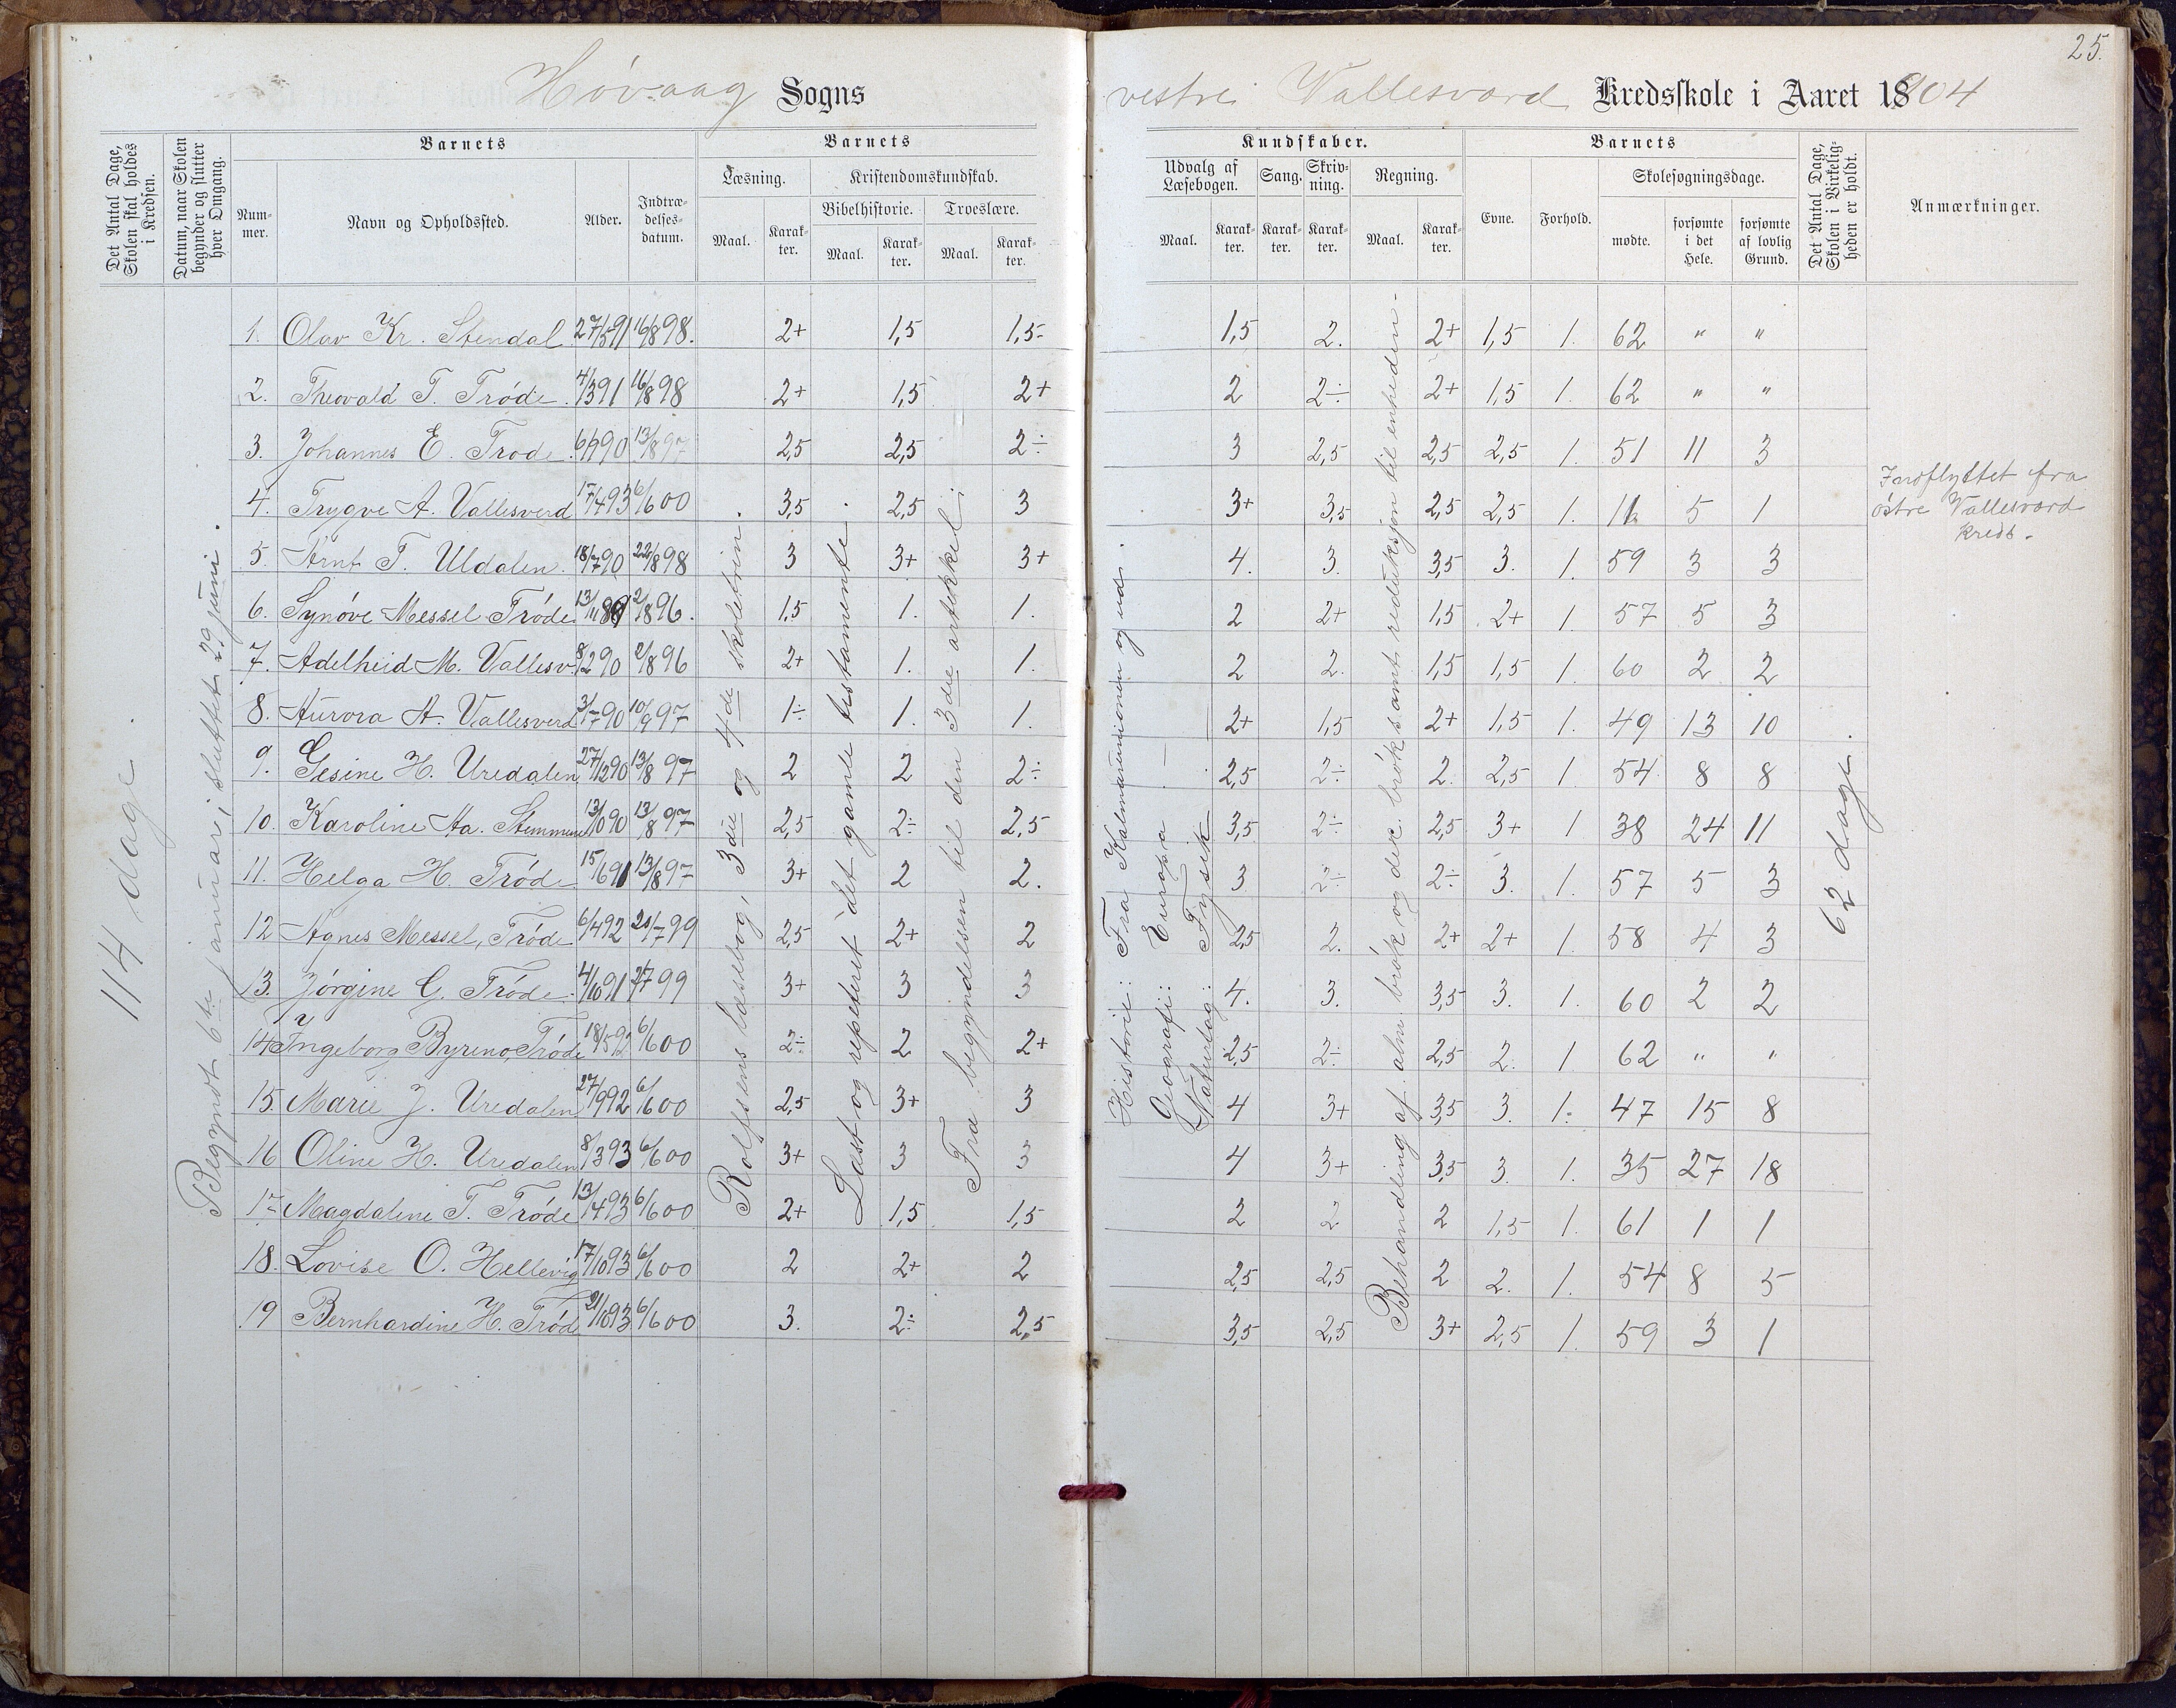 25.
Høvaag Sogns
vestre Vallesværd Kredsskole i Aaret 1904
Det Antal Dage, Skolen skal holdes i Kredsen.
Datum, naar Skolen begynder og slutter hver Omgang.
Barnets
Num-mer.
Navn og Opholdssted.
Alder.
Indtræ-delses-datum.
Barnets
Læsning.
Kristendomskundskab.
Bibelhistorie.
Troeslære.
Maal.
Karak-ter.
Maal.
Karak-ter.
Maal.
Karak-ter.
Kundskaber.
Udvalg af Læsebogen.
Sang.
Skriv-ning.
Regning.
Maal.
Karak-ter.
Karak-ter.
Karak-ter.
Maal.
Karak-ter.
Barnets
Evne.
Forhold.
Skolesøgningsdage.
mødte.
forsømte i det Hele.
forsømte af lovlig Grund.
Det Antal Dage, Skolen i Virkelig-heden er holdt.
Anmærkninger.
114 dage.
Begyndt 6te januar, sluttet 29 juni.
Rolfsens læsebog, 3die og 4de skoletrin.
Læst og repeteret det gamle testamente.
Fra begyndelsen til den 3die artikkel.
Historie: Fra Kalmarunionen og ud.
Geografi: Europa —
Naturlag: Fysik
Behandling af alm. brøk og dec. brøk samt reduksjon til enheden.
62 dage.
1. Olav Kr. Stendal 27/5 91 16/8 98. 2+ 1,5 1,5 1,5 2. 2+ 1,5 1. 62 " "
2. Theovald T. Trøde. 4/3 91 16/8 98 2+ 1,5 2+ 2 2÷ 2+ 1,5 1. 62 " "
3. Johannes E. Trøde. 6/9 90 13/8 97 2,5 2,5 2÷ 3 2,5 2,5 2,5 1. 51 11 3
4. Trygve A. Vallesverd 17/4 93 6/6 00 3,5 2,5 3 3+ 3,5 2,5 2,5 1. 11 5 1 Indflyttet fra
østre Vallesværd
kreds.
5. Arnt T. Uldalen. 18/7 90 22/8 98 3 3+ 3+ 4. 3. 3,5 3. 1. 59 3 3
6. Synøve Messel Trøde 13/11 89 2/8 96. 1,5 1. 1. 2 2+ 1,5 2+ 1. 57 5 3
7. Adelheid M. Vallesv. 8/2 90 2/8 96 2+ 1. 1. 2 2. 1,5 1,5 1. 60 2 2
8. Aurora A. Vallesverd 31/7 90 10/9 97 1÷ 1. 1. 2+ 1,5 2+ 1,5 1. 49 13 10
9. Gesine H. Uredalen 27/12 90 13/8 97 2 2 2÷ 2,5 2÷ 2. 2,5 1. 54 8 8
10. Karoline Aa. Stemmene 13/10 90 13/8 97 2,5 2÷ 2,5 3,5 2÷ 2,5 3+ 1 38 24 11
11. Helga H. Trøde 15/6 91 13/8 97 3+ 2 2. 3 2÷ 2÷ 3. 1. 57 5 3
12 Agnes Messel, Trøde 6/4 92 20/7 99 2,5 2+ 2 2,5 2. 2+ 2+ 1. 58 4 3
13. Jørgine G. Trøde. 4/10 91 2/7 99 3+ 3 3 4. 3. 3,5 3. 1. 60 2 2
14 Ingeborg Byreno, Trøde 18/5 92 6/6 00 2÷ 2 2+ 2,5 2÷ 2,5 2. 1 62 " "
15. Marie J. Uredalen 27/9 92 6/6 00 2,5 3+ 3 4 3+ 3,5 3. 1. 47 15 8
16 Oline H. Uredalen 8/3 93 6/6 00 3+ 3 3 4 3+ 3,5 3. 1. 35 27 18
17 Magdaline T. Trøde 13/4 93 6/6 00 2+ 1,5 1,5 2 2 2 1,5 1. 61 1 1
18. Lovise O. Hellevig 17/10 93 6/6 00 2 2+ 2 2,5 2,5 2 2. 1. 54 8 5
19 Bernhardine H. Trøde 21/10 93 6/6 00 3. 2÷ 2,5 3,5 2,5 3+ 2,5 1. 59 3 1